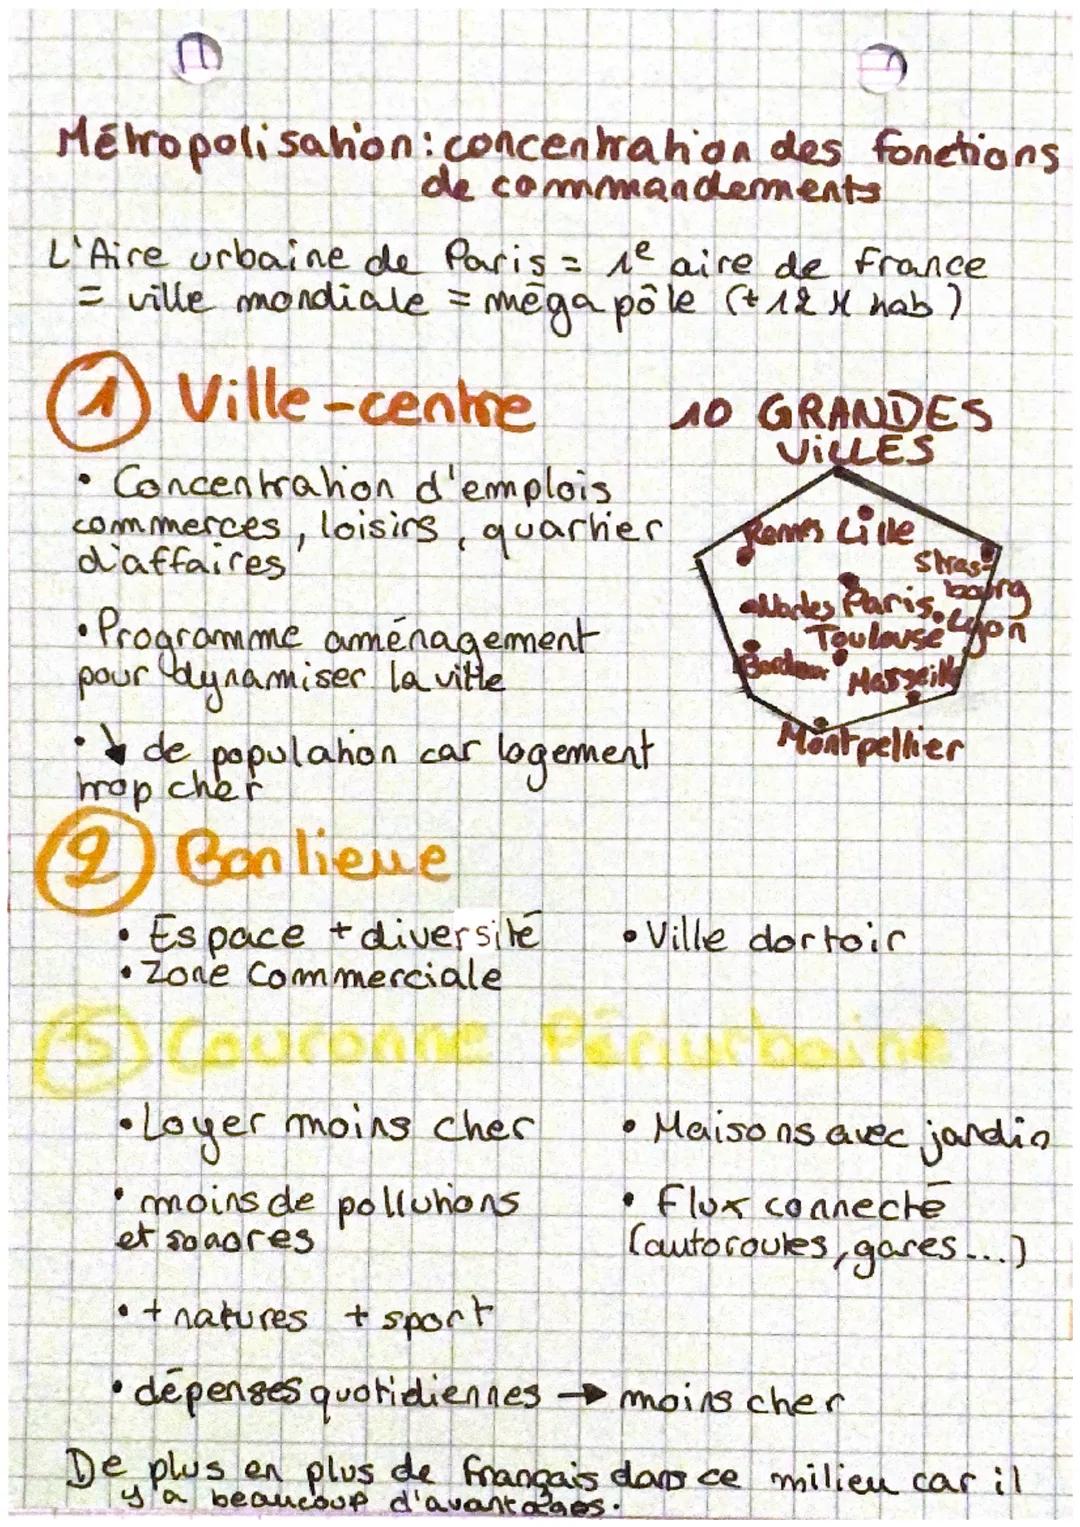 Métropolisation : concentration des fonctions
de commandements
L'Aire urbaine de Paris = 1e aire de France
= ville mondiale = méga pôle (+ 12 M hab)
① Ville-centre
• Concentration d'emplois
commerces, loisirs, quartier
d'affaires
• Programme aménagement
pour dynamiser la ville
• ↓ de population car logement
trop cher
10 GRANDES
VILLES
Rennes Lille
Stras-
bourg
Nantes Paris Lyon
Toulouse
Bordeaux Marseille
Montpellier
② Banlieue
• Espace + diversité • Ville dortoir
• Zone Commerciale
③ Couronne Périurbaine
• Loyer moins cher • Maisons avec jardin
• moins de pollutions • Flux connecté
et sonores (autoroutes, gares...)
• + natures + sport
• dépenses quotidiennes → moins cher
De plus en plus de français dans ce milieu car il
y a beaucoup d'avantages.